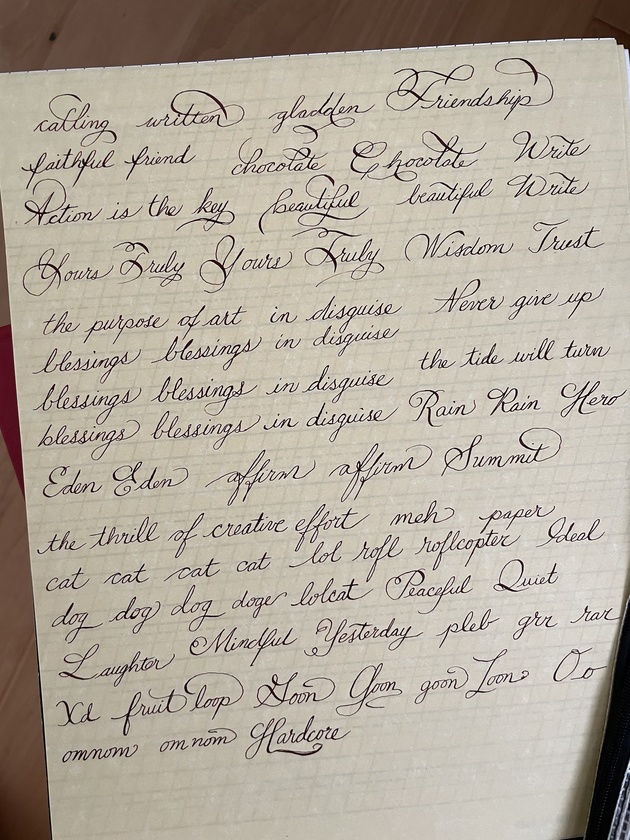 calling written gladden Friendship
faithful friend chocolate Chocolate Write
Action is the key beautiful beautiful Write
Yours Truly Yours Truly Wisdom Trust
the purpose of art in disguise Never give up
blessings blessings in disguise
blessings blessings in disguise the tide will turn
blessings blessings in disguise Rain Rain Hero
Eden Eden affirm affirm Summit
the thrill of creative effort meh paper
cat cat cat cat lol rofl roflcopter Ideal
dog dog dog doge lolcat Peaceful Quiet
Laughter Mindful Yesterday pleb grr rar
Xd fruit loop Goon Goon goon Loon Oo
omnom omnom Hardcore